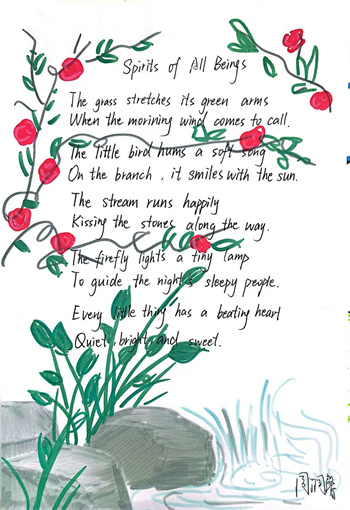 Spirits of All Beings
The grass stretches its green arms
When the morining wind comes to call.
The little bird hums a soft song
On the branch, it smiles with the sun.
The stream runs happily
Kissing the stones along the way.
The firefly lights a tiny lamp
To guide the night's sleepy people.
Every little thing has a beating heart
Quiet, bright, and sweet.